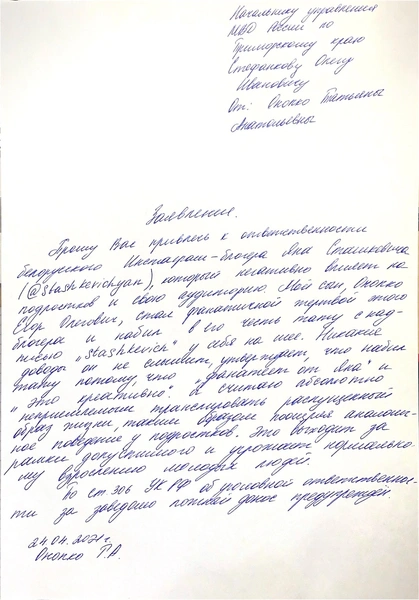 Начальнику управления
МВД России по
Приморскому краю
Стефанкову Олегу
Ивановичу
От: Онопко Татьяны
Анатольевны
Заявление.
Прошу Вас привлечь к ответственности
белорусского Инстаграм-блогера Яна Сташкевича
(@stashkevichyan), который негативно влияет на
подростков и свою аудиторию. Мой сын, Онопко
Егор Олегович, стал фанатичной жертвой этого
блогера и набил в его честь тату с над-
писью "stashkevich" у себя на шее. Никакие
доводы он не слышит, утверждает, что набил
татву потому, что "фанатеет от Яна" и
"это креативно". Я считаю абсолютно
неприемлемым транслировать распущенный
образ жизни, таким образом поощряя аналогич-
ное поведение у подростков. Это выходит за
рамки допустимого и угрожает нормально-
му взрослению молодых людей.
По ст.306 УК РФ об уголовной ответственнос-
ти за заведомо ложный донос предупрежден.
24.04.2021г.
Онопко Т.А.